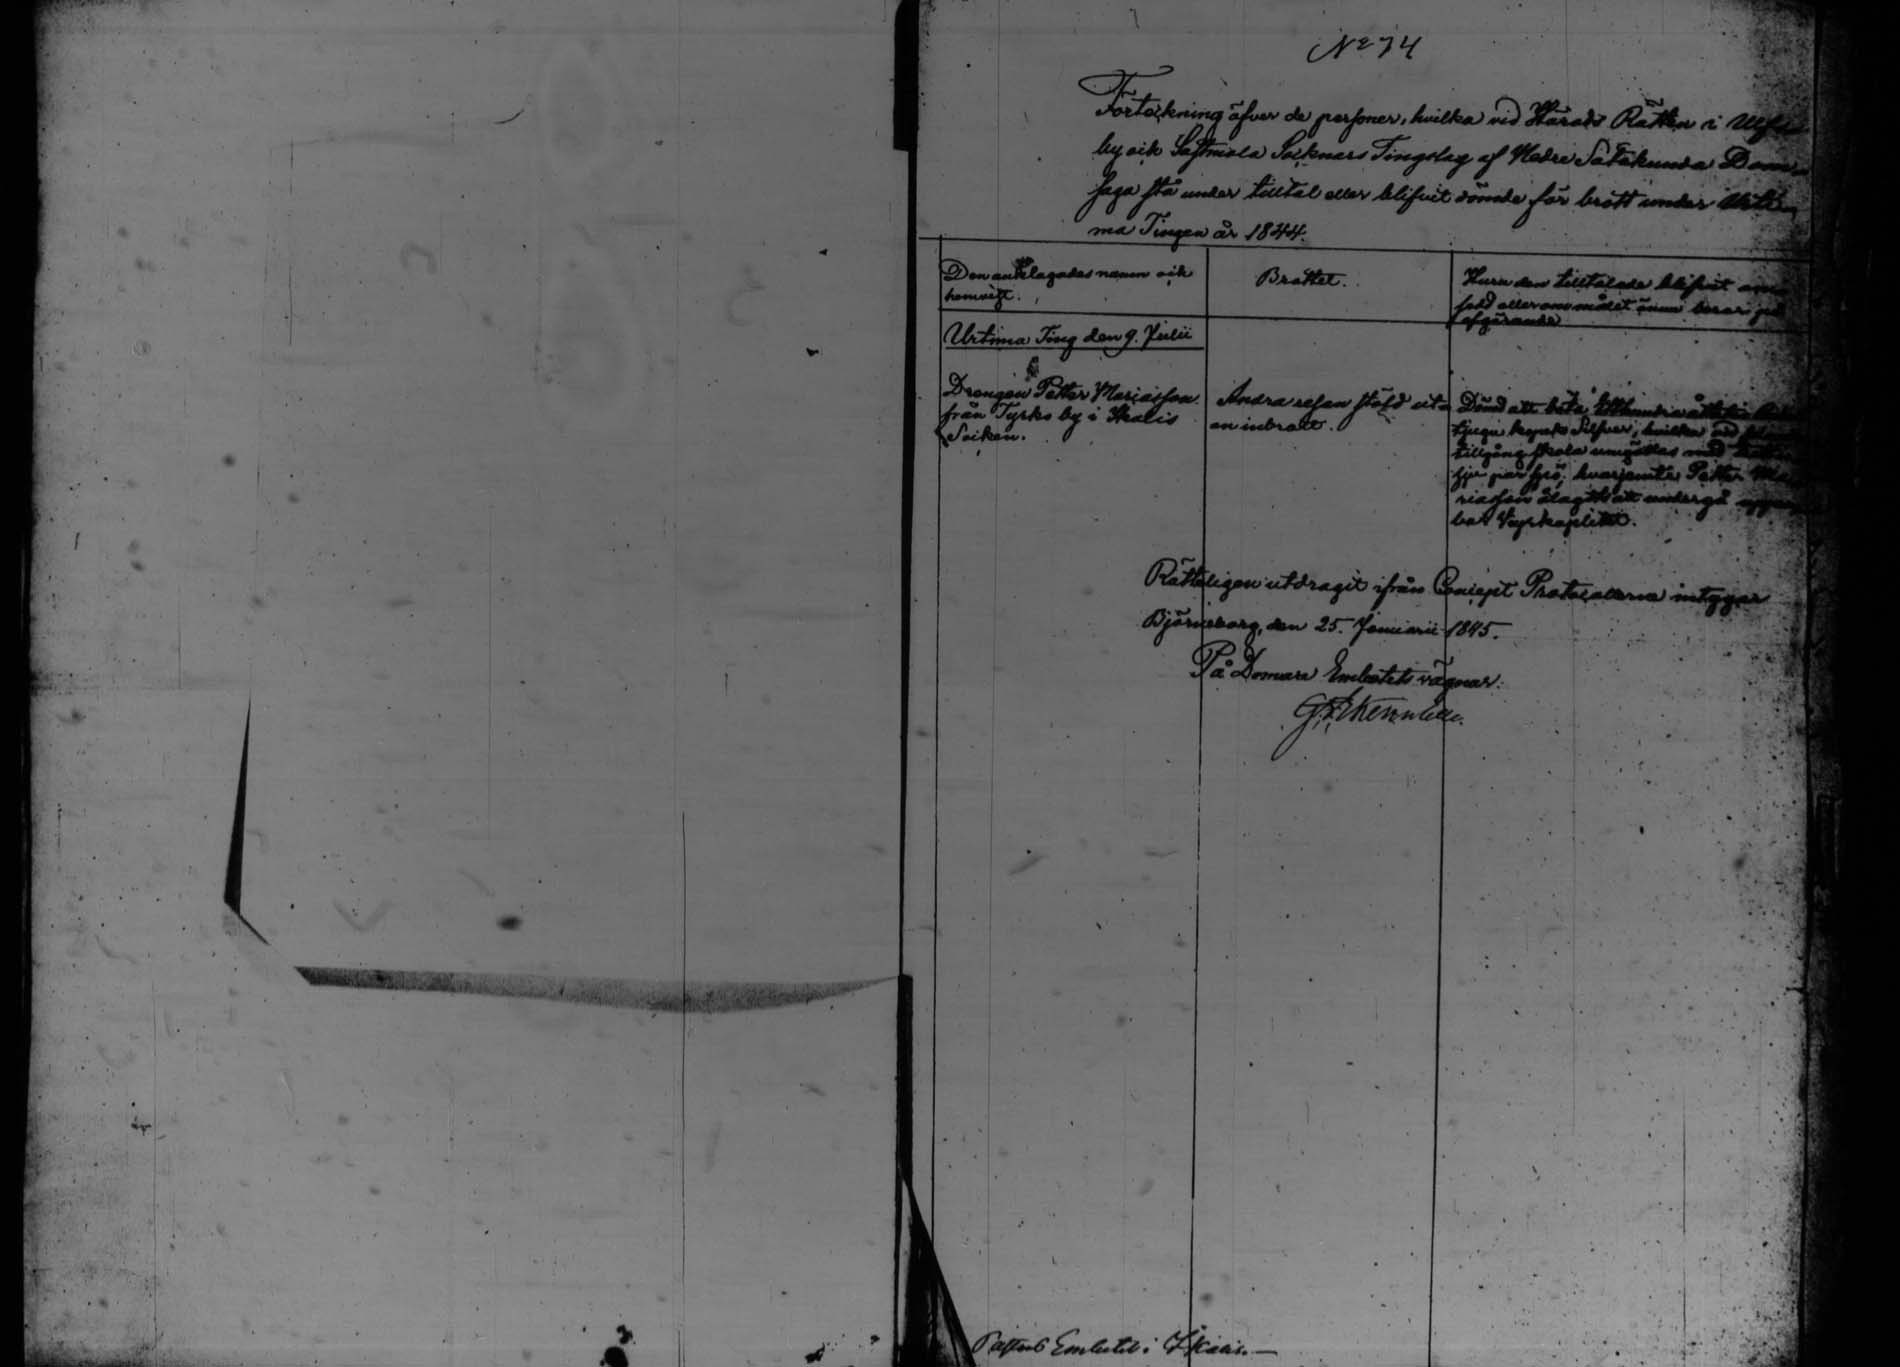 No 74
Förteckning öfver de personer, hvilka vid Härads Rätten i Ulfs
by och Sastmola Socknars Tingslag af Nedre Satakunda Dom
saga stå under tilltal eller blifvit dömde för brott under Urti
ma Tingen år 1844.
Den anklagades namn och
hemvist.
Brottet.
Huru den tilltalade blifvit an
sedd eller om målet ännu beror på
afgörande
Urtima Ting den 9. Julii
Drengen Petter Mariasson
från Tyrks by i Ikalis
Socken.
Andra resan stöld ut
an inbrott.
Dömd att böta
tjugu kopek Silfver, hvilka vid
tillgång skola umgällas med
sju par spö; hvarjemte Petter Ma
riasson ålagts att undergå uppen
bar Kyrkoplikt.
Rätteligen utdragit ifrån Concept Protocollerne intygar
Björneborg, den 25. Januarii 1845.
På Domare Embetets vägnar:
Pastors Embetet i Ikalis.